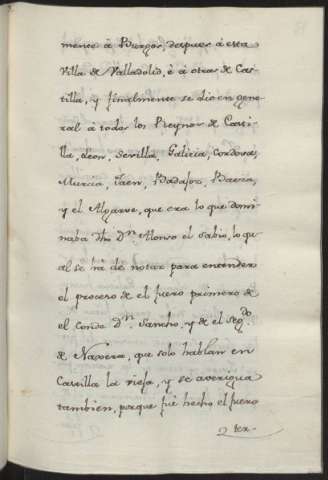 mente à Burgos, despues à esta
Villa de Valladolid, è à otras de Cas-
tilla, y finalmente se dio en gene-
ral à todos los Reynos de Casti-
lla, Leon, Sevilla, Galicia, Cordova,
Murcia, Jaen, Badajoz, Baeza,
y el Algarve, que era lo que domi-
naba dho Dn. Alonso el sabio, lo qu-
al se hà de notar para entender
el proceso de el fuero primero de
el Conde Dn. Sancho, y de el segdo.
de Naxera, que solo hablan en
Castilla la vieja, y se averigua
tambien, porque fuè hecho el fuero